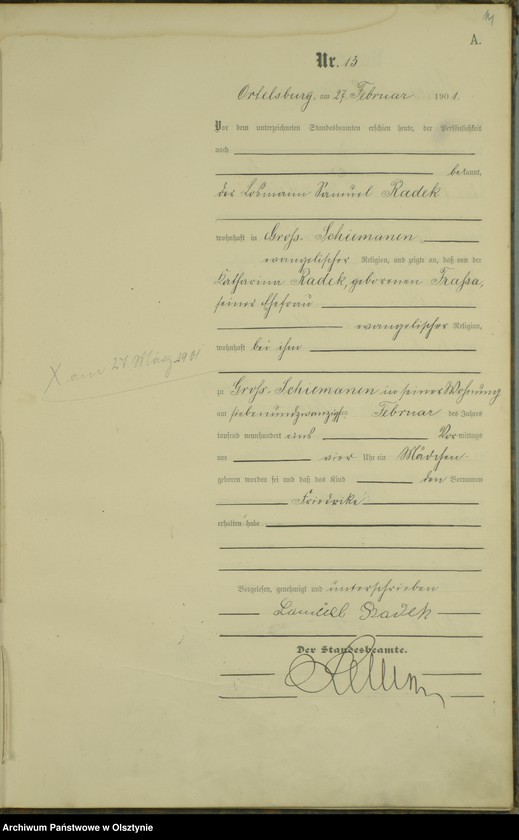 A.
Nr. 13
Ortelsburg, am 27. Februar 1901.
Vor dem unterzeichneten Standesbeamten erschien heute, der Persönlichkeit
nach
bekannt,
der Losmann Samuel Radek
wohnhaft in Groß. Schiemanen
evangelischer Religion, und zeigte an, daß von der
Katharina Radek, geborenen
seiner Ehefrau
evangelischer Religion,
wohnhaft bei ihm
X am 27 März 1901
zu Groß. Schiemanen in seiner Wohnung
am siebenundzwanzigsten Februar des Jahres
tausend neunhundert eins Vormittags
um vier Uhr ein Mädchen
geboren worden sei und daß das Kind den Vornamen
Friedrike
erhalten habe
Vorgelesen, genehmigt und unterschrieben
Samuel Radek
Der Standesbeamte.
Archiwum Państwowe w Olsztynie